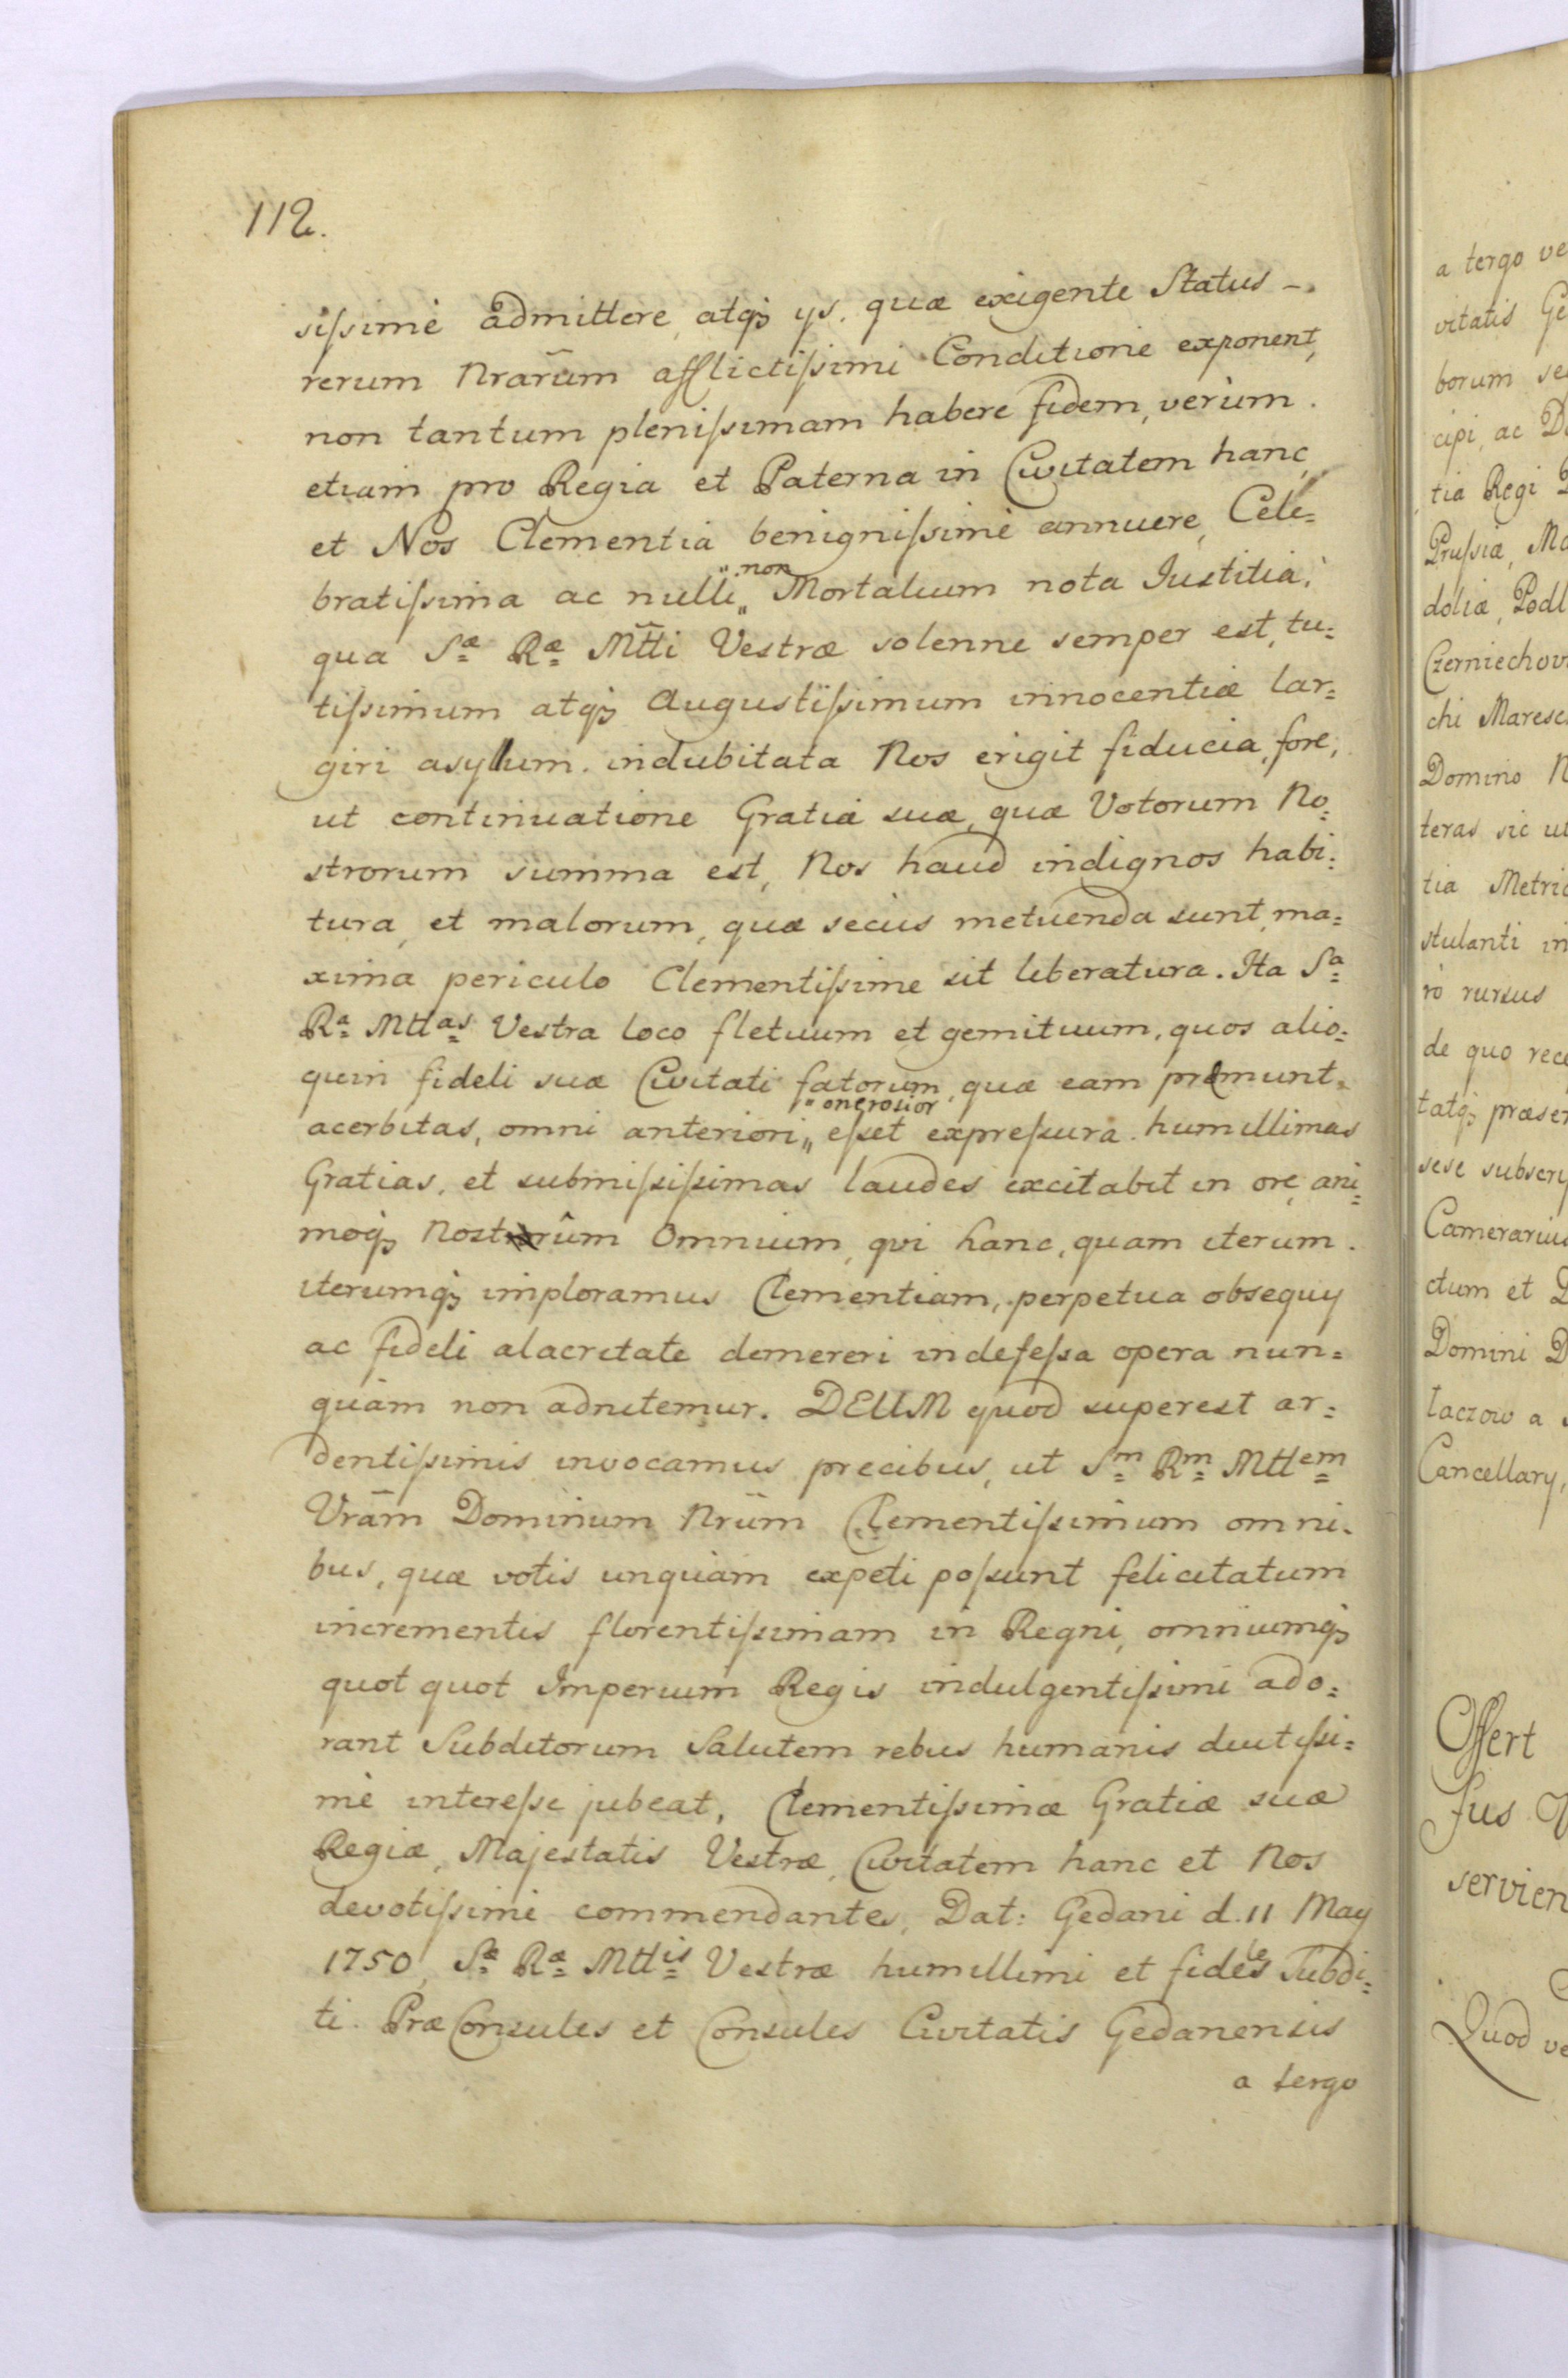 112.
sissime admittere, atq; ys. quæ exigente Status -
rerum Nrarum afflictissimi Conditione exponent,
non tantum plenissimam habere fidem, verùm.
etiam pro Regia et Paterna in Civitatem hanc,
et Nos Clementia benignissime annuere, Cele=
bratissima ac nulli „non Mortalium nota Iustitia,
qua Sæ Ræ Mtti Vestræ solenne semper est, tu=
tissimum atq; Augustissimum innocentiæ lar=
giri asyllum. indubitata Nos erigit fiducia, fore,
ut continuatione Gratiæ suæ, quæ Votorum No=
strorum summa est, Nos haud indignos habi=
tura, et malorum, quæ secus metuenda sunt, ma=
xima periculo Clementissime sit liberatura. Ita Sa
Ra Mttas Vestra loco fletuum et gemituum, quos alio=
quin fideli suæ Civitati fatorum, quæ eam premunt.
acerbitas, omni anteriori „onerosior esset expressura. humillimas
Gratias, et submississimas laudes excitabit in ore, ani=
moq; Nostrûm Omnium, qvi hanc, quam iterum.
iterumq; imploramus Clementiam, perpetua obsequy
ac fideli alacritate demereri indefessa opera nun=
quàm non adnitemur. DEUM quod superest ar=
dentissimis invocamus precibus, ut Sm Rm Mttem
Vram Dominum Nrum Clementissimum omni=
bus, quæ votis unquam expeti possunt felicitatum
incrementis florentissimam in Regni, omniumq;
quot quot Imperium Regis indulgentissimi ado=
rant Subditorum Salutem rebus humanis diutissi=
mè interesse jubeat, Clementissimæ Gratiæ suæ
Regiæ, Majestatis Vestræ, Civitatem hanc et Nos
devotissime commendantes, Dat: Gedani d. 11 May
1750, Sæ Ræ Mttis Vestræ humillimi et fideles Subdi=
ti. PræConsules et Consules Civitatis Gedanensis
a tergo
a tergo
vitatis
borum
cipi, ac
tia Regi
Prussiæ,
doliæ, Podl
Czerniechov
chi Maresc
Domino
teras sic
tia Metric
stulanti in
rò rursus
de quo rec
tatq; præser
sese subscry
Camerarius
ctum et
Domini
laczow a
Cancellary,
Offert
sus
servien
Quod